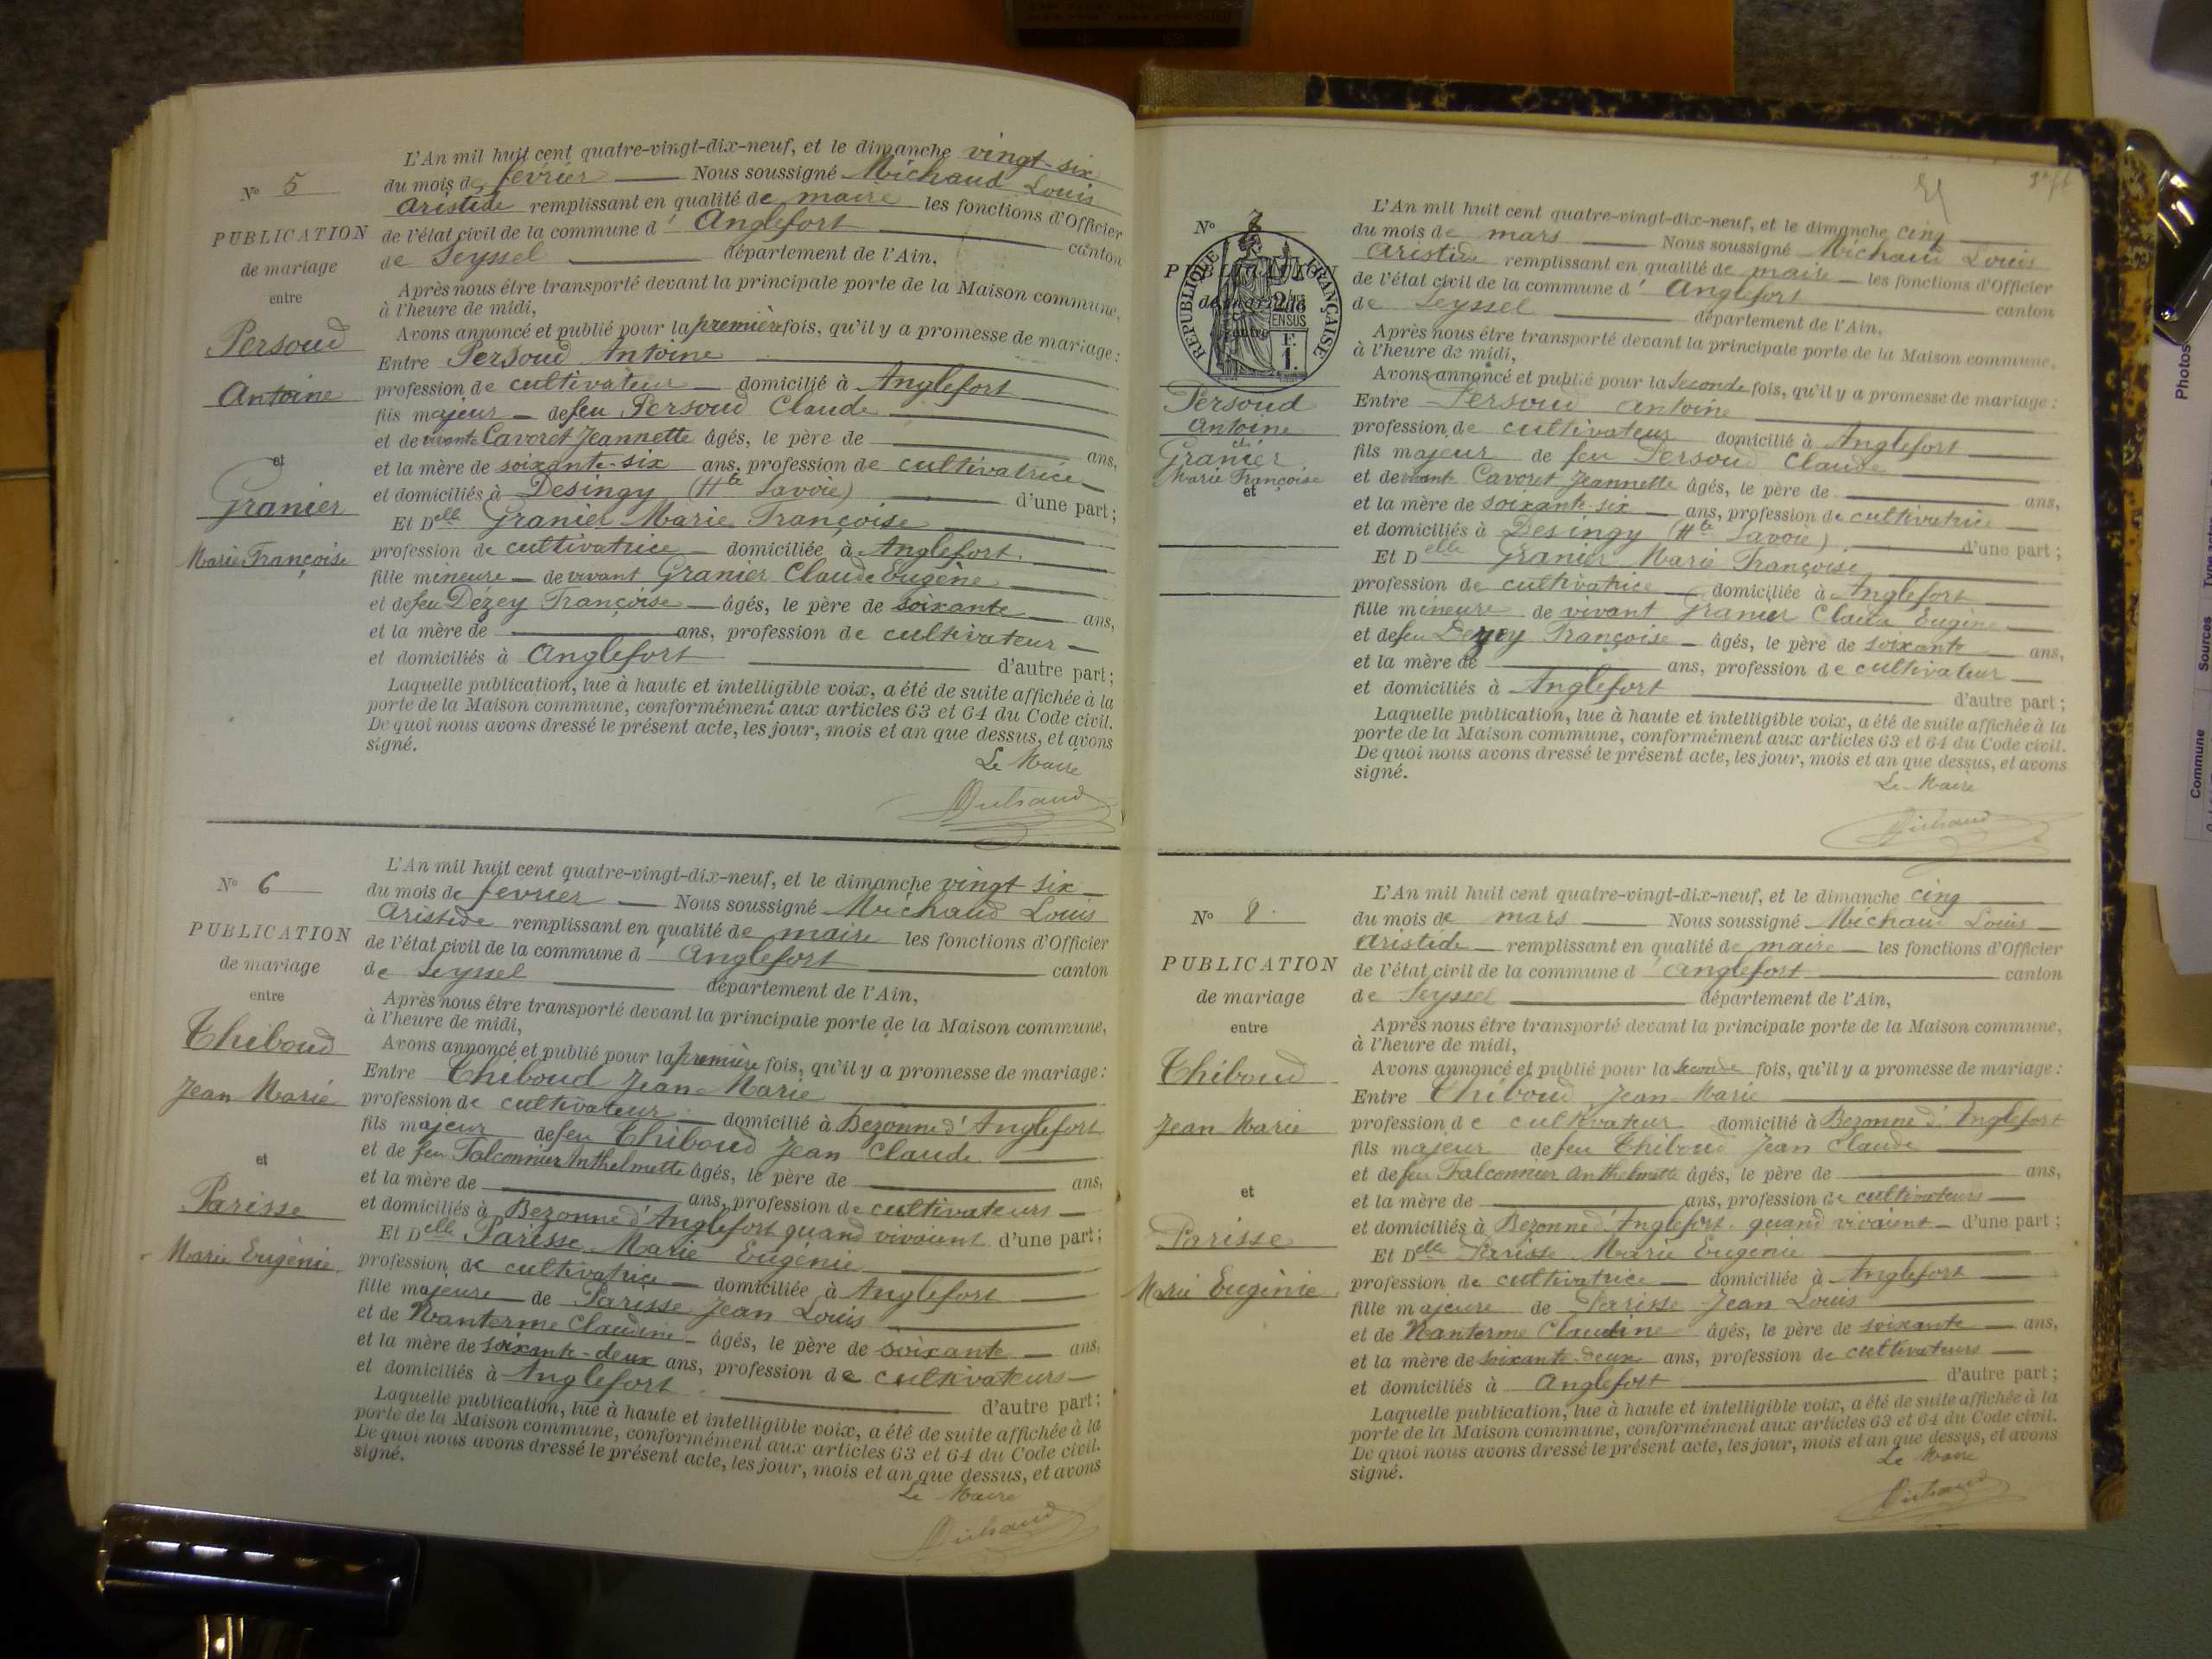 N° 5
PUBLICATION
de mariage
entre
Persoud
Antoine
et
Granier
Marie Françoise
L'An mil huit cent quatre-vingt-dix-neuf, et le dimanche vingt-six
du mois de février Nous soussigné Michaud Louis
Aristide remplissant en qualité de maire les fonctions d'Officier
de l'état civil de la commune d' Anglefort canton
de Seyssel département de l'Ain,
Après nous être transporté devant la principale porte de la Maison commune,
à l'heure de midi,
Avons annoncé et publié pour la première fois, qu'il y a promesse de mariage :
Entre Persoud Antoine
profession de cultivateur domicilié à Anglefort
fils majeur de feu Persoud Claude
et de vivante Cavoret Jeannette âgés, le père de ans,
et la mère de soixante-six ans, profession de cultivatrice
et domiciliés à Desingy (Hte Savoie) d'une part ;
Et Delle Granier Marie Françoise
profession de cultivatrice domiciliée à Anglefort
fille mineure de vivant Granier Claude Eugène
et de feu Dézey Françoise âgés, le père de soixante ans,
et la mère de ans, profession de cultivateur
et domiciliés à Anglefort d'autre part ;
Laquelle publication, lue à haute et intelligible voix, a été de suite affichée à la
porte de la Maison commune, conformément aux articles 63 et 64 du Code civil.
De quoi nous avons dressé le présent acte, les jour, mois et an que dessus, et avons
signé.
Le Maire
Michaud
N° 6
PUBLICATION
de mariage
entre
Thiboud
Jean Marie
et
Parisse
Marie Eugénie
L'An mil huit cent quatre-vingt-dix-neuf, et le dimanche vingt six
du mois de février Nous soussigné Michaud Louis
Aristide remplissant en qualité de maire les fonctions d'Officier
de l'état civil de la commune d' Anglefort canton
de Seyssel département de l'Ain,
Après nous être transporté devant la principale porte de la Maison commune,
à l'heure de midi,
Avons annoncé et publié pour la première fois, qu'il y a promesse de mariage :
Entre Thiboud Jean-Marie
profession de cultivateur domicilié à Bezonne d'Anglefort
fils majeur de feu Thiboud Jean Claude
et de feu Falconnier Anthelmette âgés, le père de ans,
et la mère de ans, profession de cultivateurs
et domiciliés à Bezonne d'Anglefort quand vivaient d'une part ;
Et Delle Parisse Marie Eugénie
profession de cultivatrice domiciliée à Anglefort
fille majeure de Parisse Jean Louis
et de Nanterme Claudine âgés, le père de soixante ans,
et la mère de soixante-deux ans, profession de cultivateurs
et domiciliés à Anglefort d'autre part ;
Laquelle publication, lue à haute et intelligible voix, a été de suite affichée à la
porte de la Maison commune, conformément aux articles 63 et 64 du Code civil.
De quoi nous avons dressé le présent acte, les jour, mois et an que dessus, et avons
signé.
Le Maire
Michaud
N° 7
PUBLICATION
de mariage
entre
RÉPUBLIQUE FRANÇAISE
EN SUS
F.
1.
Persoud
Antoine
et
Granier
Marie Françoise
et
L'An mil huit cent quatre-vingt-dix-neuf, et le dimanche cinq
du mois de mars Nous soussigné Michaud Louis
Aristide remplissant en qualité de maire les fonctions d'Officier
de l'état civil de la commune d' Anglefort canton
de Seyssel département de l'Ain,
Après nous être transporté devant la principale porte de la Maison commune,
à l'heure de midi,
Avons annoncé et publié pour la seconde fois, qu'il y a promesse de mariage :
Entre Persoud Antoine
profession de cultivateur domicilié à Anglefort
fils majeur de feu Persoud Claude
et de vivante Cavoret Jeannette âgés, le père de ans,
et la mère de soixante-six ans, profession de cultivatrice
et domiciliés à Desingy (Hte Savoie) d'une part ;
Et Delle Granier Marie Françoise
profession de cultivatrice domiciliée à Anglefort
fille mineure de vivant Granier Claude Eugène
et de feu Dezey Françoise âgés, le père de soixante ans,
et la mère de ans, profession de cultivateur
et domiciliés à Anglefort d'autre part ;
Laquelle publication, lue à haute et intelligible voix, a été de suite affichée à la
porte de la Maison commune, conformément aux articles 63 et 64 du Code civil.
De quoi nous avons dressé le présent acte, les jour, mois et an que dessus, et avons
signé.
Le Maire
Michaud
N° 8
PUBLICATION
de mariage
entre
Thiboud
Jean Marie
et
Parisse
Marie Eugénie
L'An mil huit cent quatre-vingt-dix-neuf, et le dimanche cinq
du mois de mars Nous soussigné Michaud Louis
Aristide remplissant en qualité de maire les fonctions d'Officier
de l'état civil de la commune d' Anglefort canton
de Seyssel département de l'Ain,
Après nous être transporté devant la principale porte de la Maison commune,
à l'heure de midi,
Avons annoncé et publié pour la seconde fois, qu'il y a promesse de mariage :
Entre Thiboud Jean-Marie
profession de cultivateur domicilié à Bezonne d'Anglefort
fils majeur de feu Thiboud Jean Claude
et de feu Falconnier Anthelmette âgés, le père de ans,
et la mère de ans, profession de cultivateurs
et domiciliés à Bezonne d'Anglefort quand vivaient d'une part ;
Et Delle Parisse Marie Eugénie
profession de cultivatrice domiciliée à Anglefort
fille majeure de Parisse Jean Louis
et de Nanterme Claudine âgés, le père de soixante ans,
et la mère de soixante-deux ans, profession de cultivateurs
et domiciliés à Anglefort d'autre part ;
Laquelle publication, lue à haute et intelligible voix, a été de suite affichée à la
porte de la Maison commune, conformément aux articles 63 et 64 du Code civil.
De quoi nous avons dressé le présent acte, les jour, mois et an que dessus, et avons
signé.
Le Maire
Michaud
Photos
Type acte
Sources
Commune